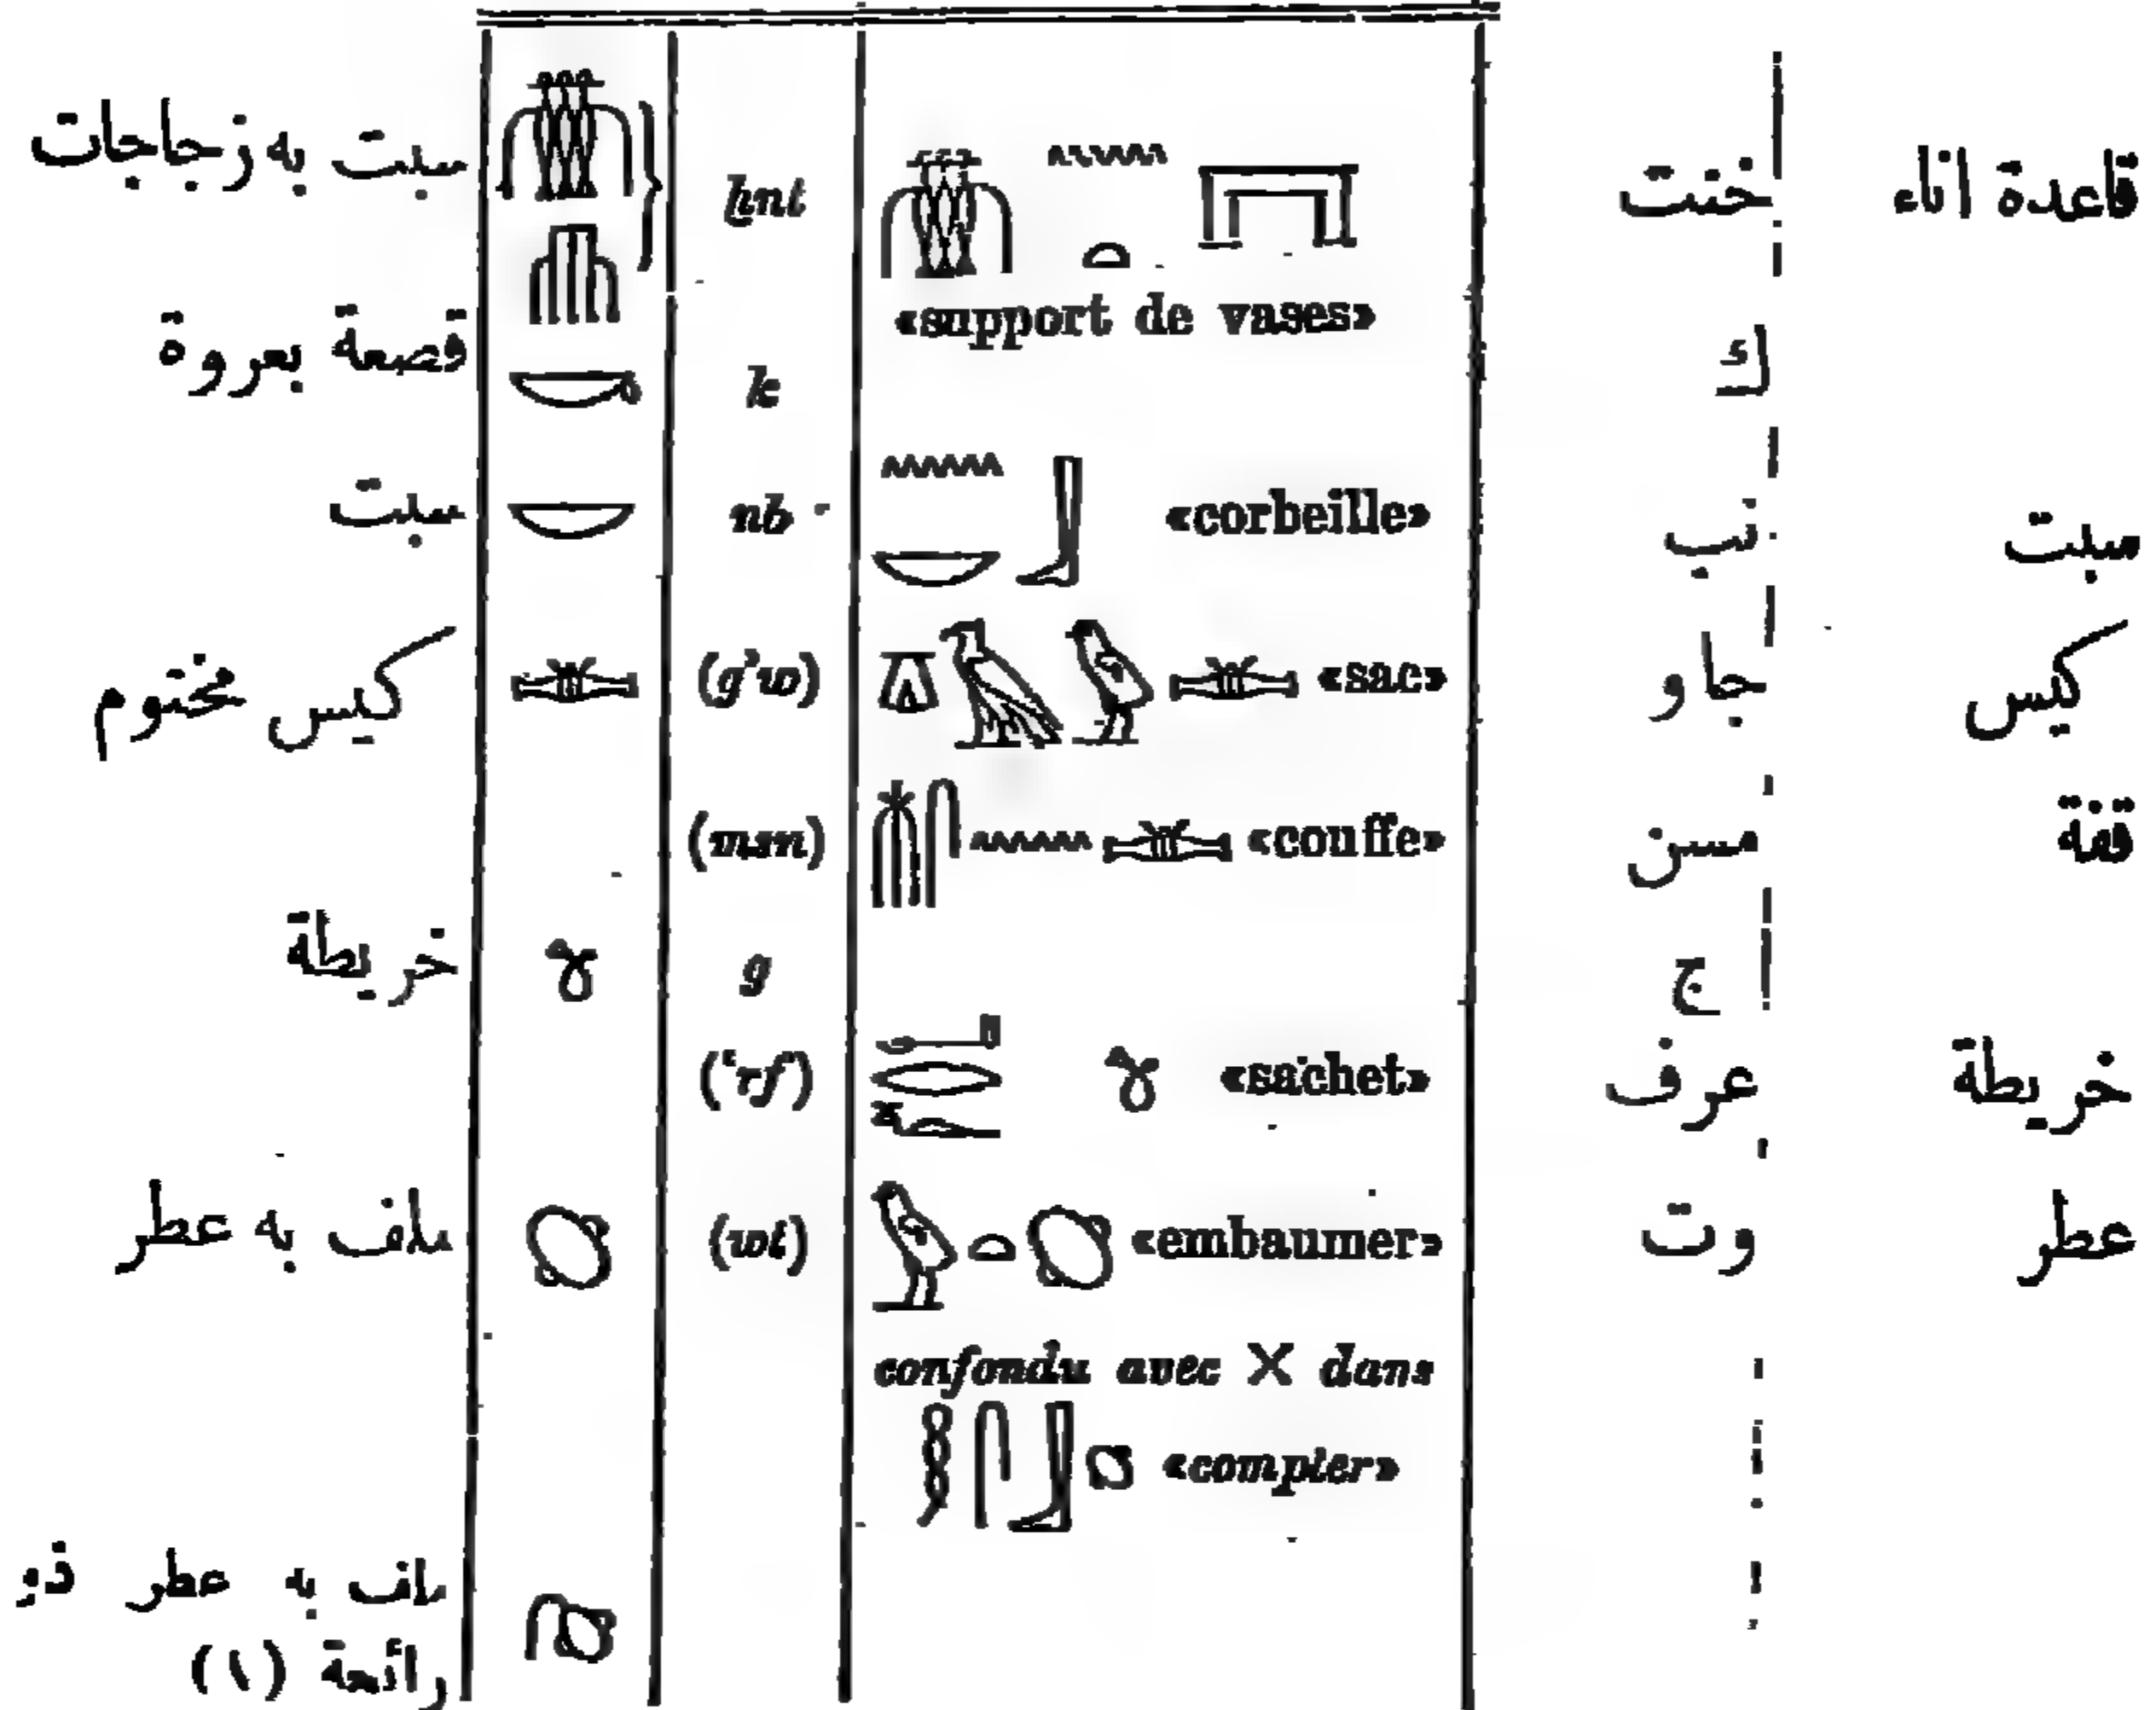 سبت به زجاجات ẖnt خنت قاعدة اناء
«support de vases»
قصعة بعروة k ك
سبت nb «corbeille» نب سبت
كيس مختوم (gʾw) «sac» جاو كيس
(msn) «couffe» مسن قفة
خريطة g ج
(ʿrf) «sachet» عرف خريطة
ملف به عطر (wt) «embaumer» وت عطر
confondu avec X dans
«compter»
ملف به عطر ذو
رائحة (١)